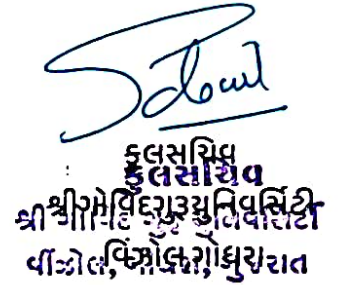 કુલસચિવ
કુલસચિવ
શ્રીગોવિંદગુરુયુનિવર્સિટી
શ્રી ગોવિંદ ગુરુ યુનિવર્સિટી
વિંઝોલ,ગોધરા
વીંઝોલ, ગોધરા, ગુજરાત